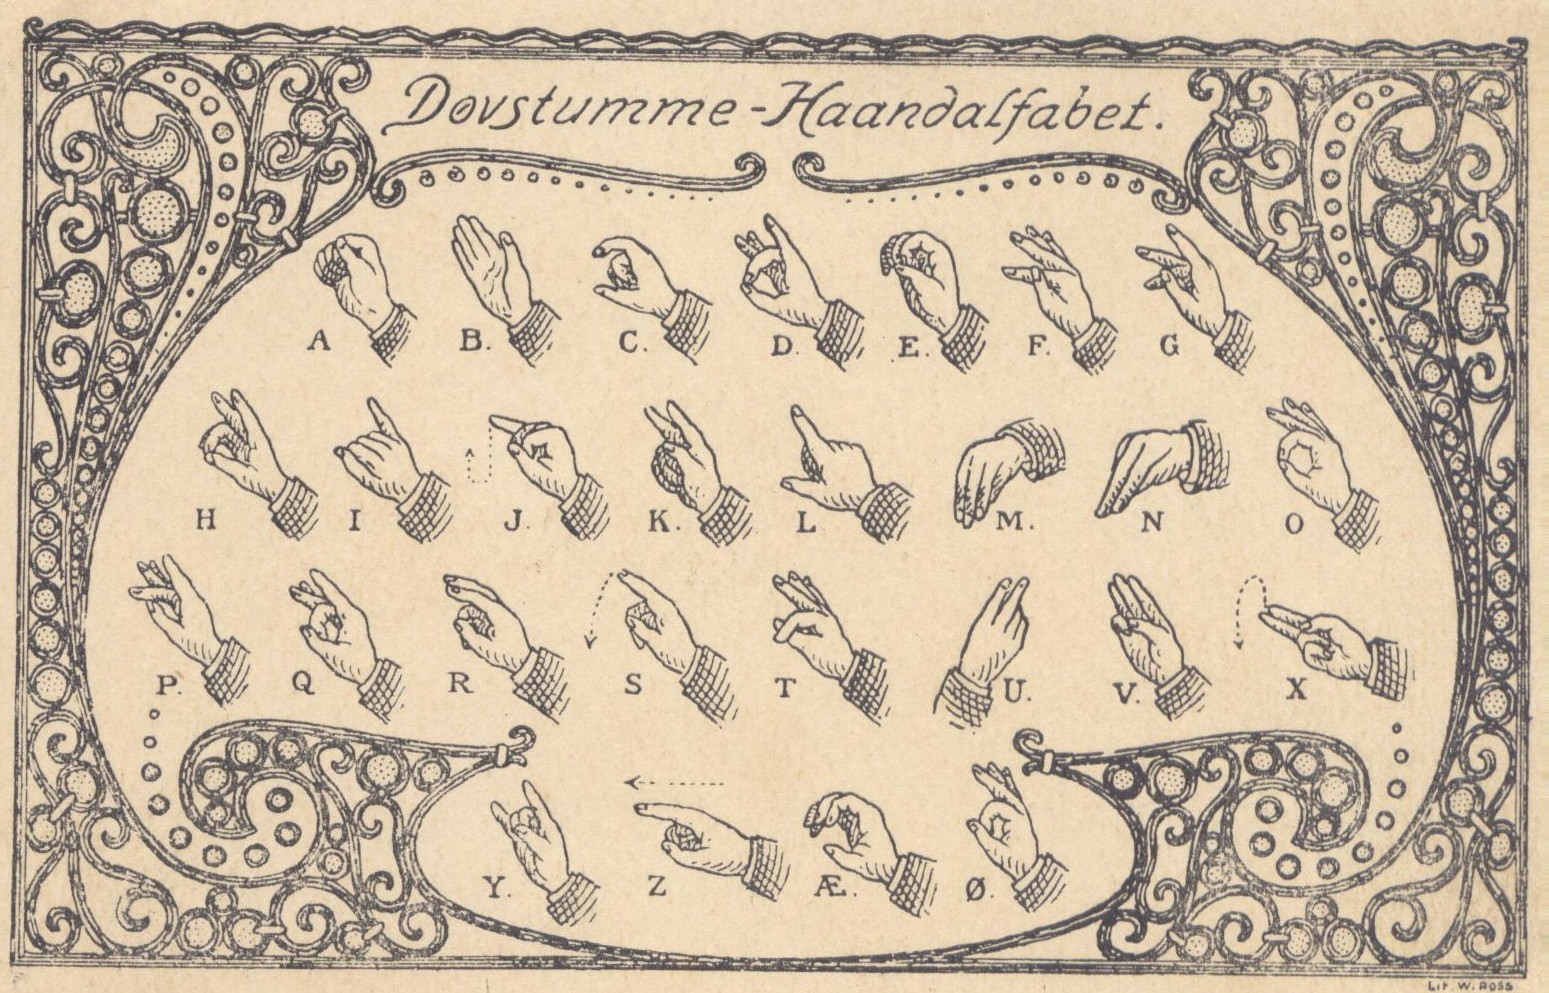 Døvstumme-Haandalfabet.
A B. C. D. E. F. G
H I J. K. L M. N O
P. Q R S T U. V. X
Y. Z Æ. Ø.
Lit. W. Ross